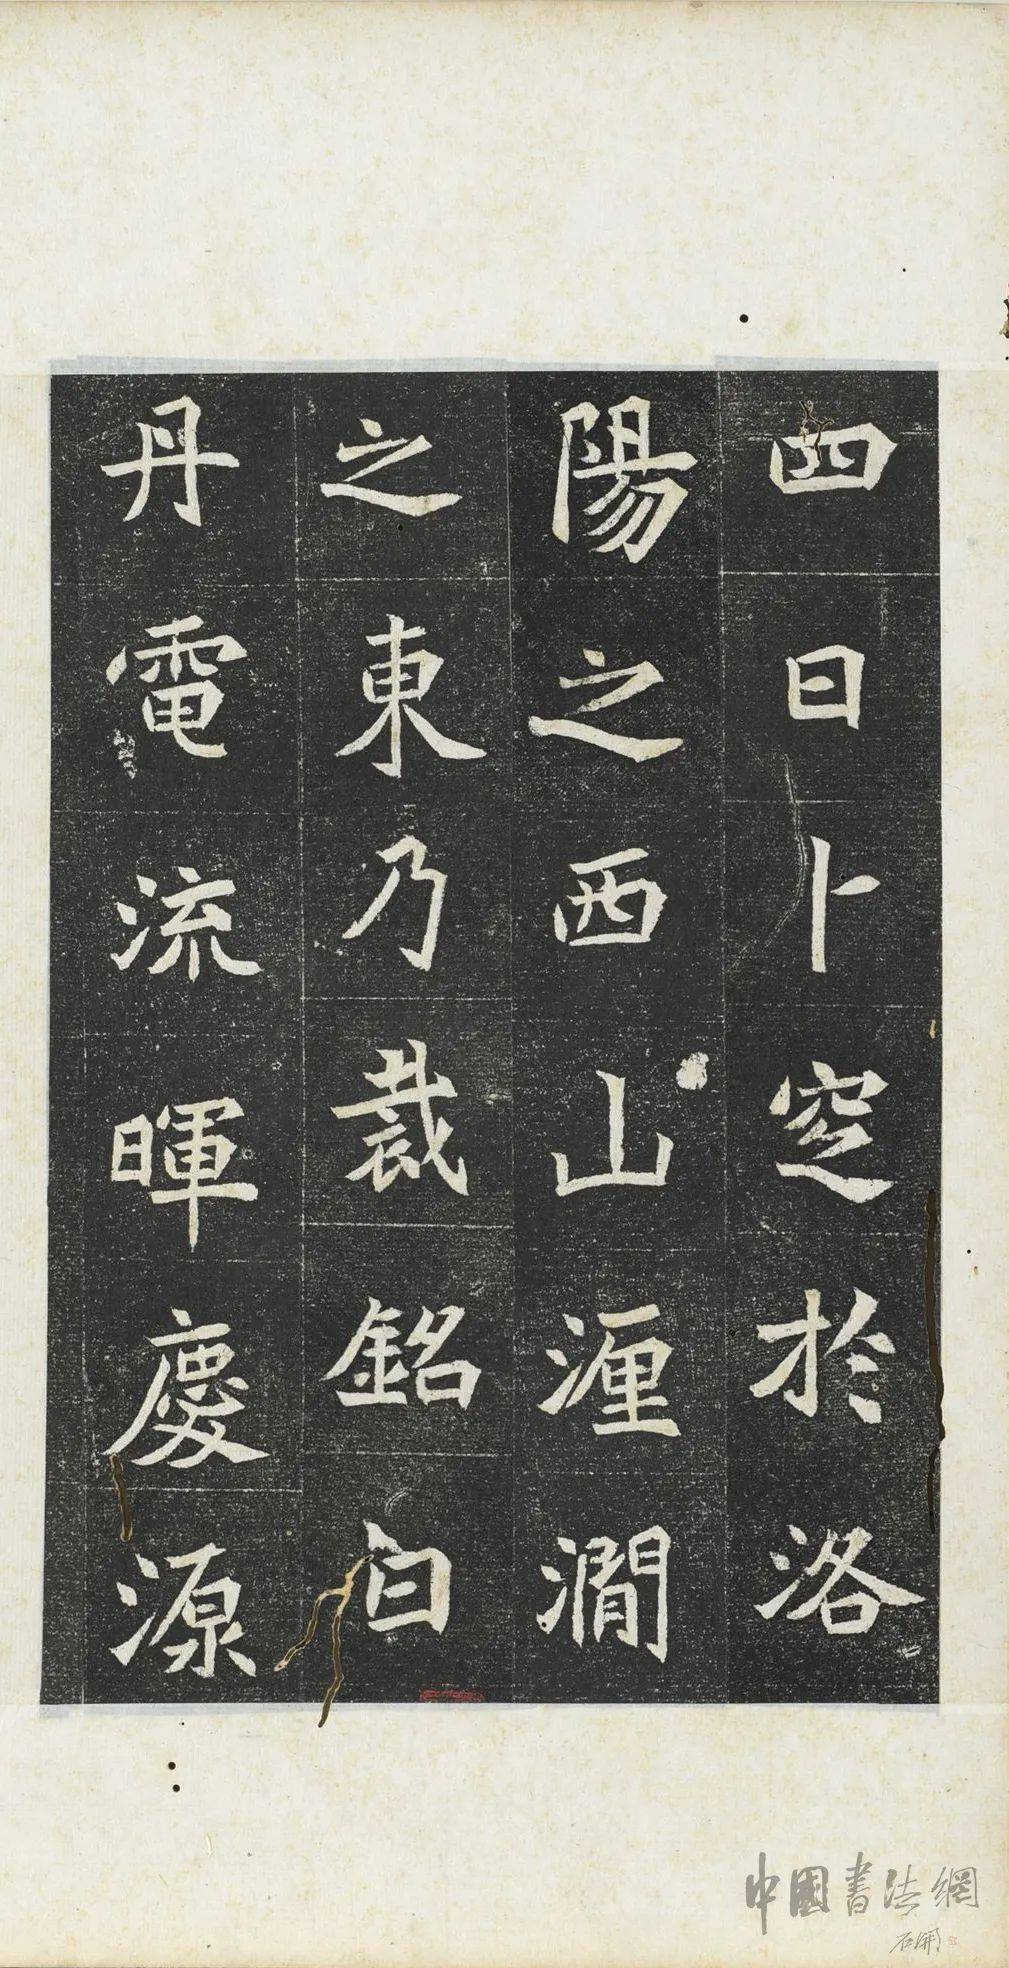 四日卜窆於洛
陽之西山湹澗
之東乃裁銘曰
丹電流暉慶源
中國書法網
石開